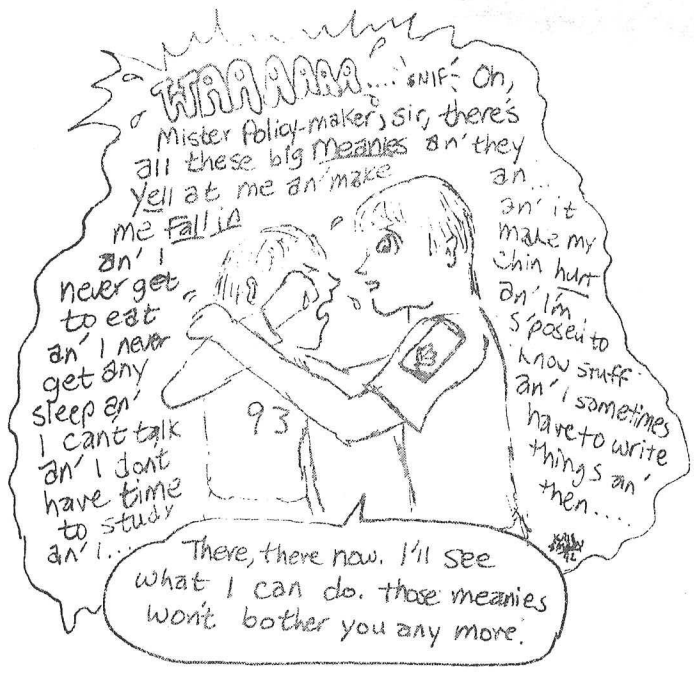 WAAAAAAA.... *SNIF* Oh,
Mister Policy-maker, sir, there's
all these big Meanies an' they
Yell at me an' make
me Fall in
an' I
never get
to eat
an' I never
get any
sleep an'
I can't talk
an' I dont
have time
to study
an' i...
an...
an' it
make my
chin hurt
an' I'm
s'posed to
know stuff
an' I sometimes
have to write
things an'
then.....
93
There, there now. I'll see
what I can do. those meanies
won't bother you any more.